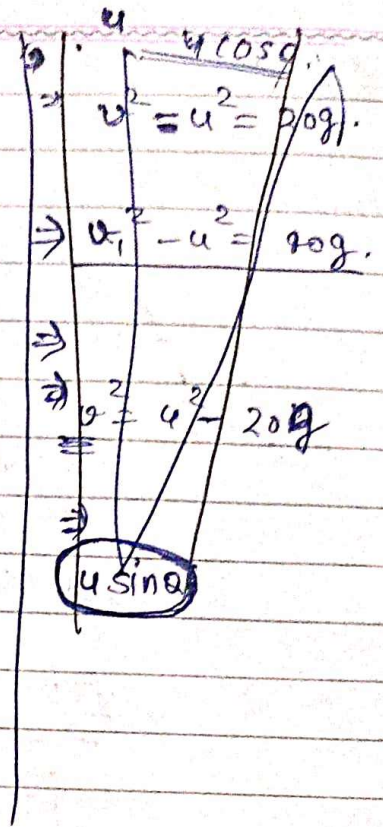 u
u cosθ
⇒ v² = u² = 20g.
⇒ v₁² - u² = 20g.
⇒
⇒ v² = u² - 20g
⇒
u sinθ